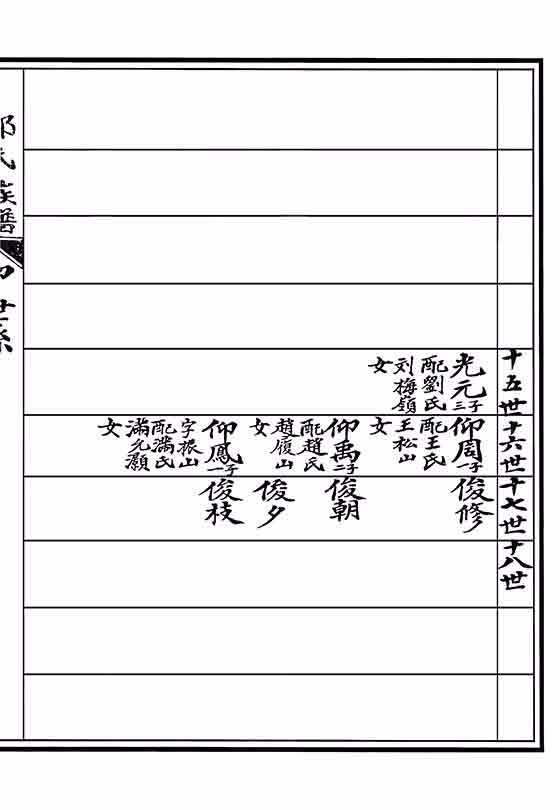 十五世
光元三子
配劉氏
刘梅嶺
女
十六世
仰周一子
配王氏
王松山
女
仰禹二子
配趙氏
趙履山
女
仰鳳一子
字振山
配滿氏
滿允灝
女
十七世
俊修
俊朝
俊夕
俊枝
十八世
氏族譜
世系